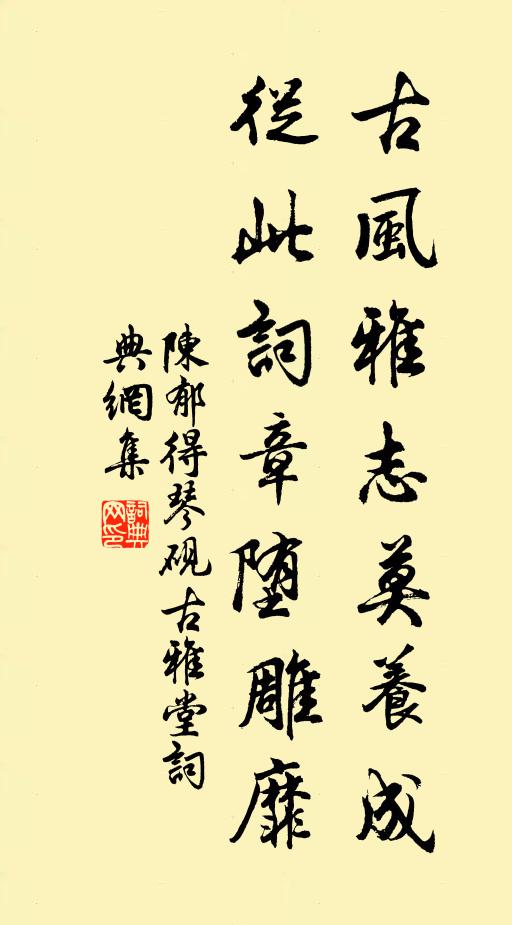 古風雅志莫養成
從此詞章堕雕靡
陳郁得琴硯古雅堂詞
典網集
詞典
网印